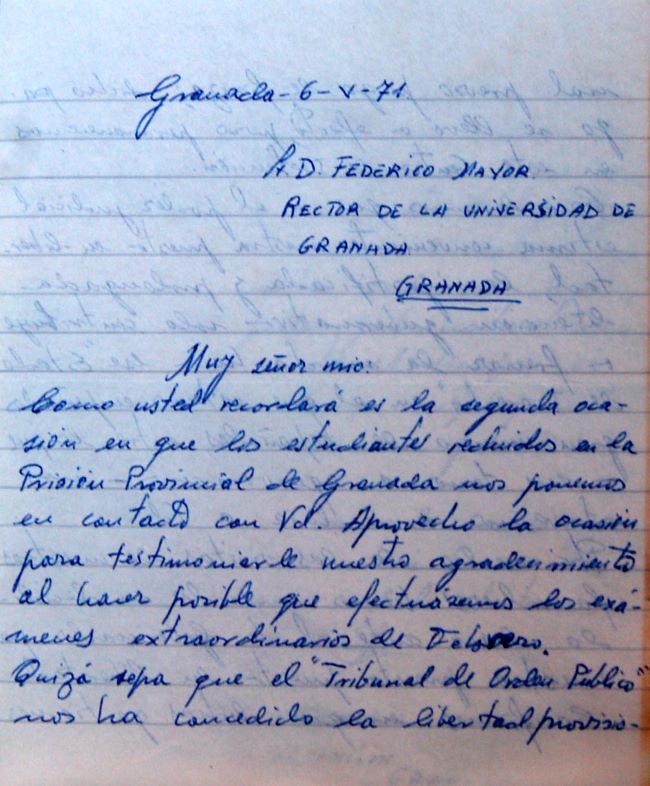 Granada-6-V-71.
Sr. D. FEDERICO MAYOR
RECTOR DE LA UNIVERSIDAD DE
GRANADA.
GRANADA
Muy señor mio:
Como usted recordará es la segunda oca-
sión en que los estudiantes recluidos en la
Prisión Provincial de Granada nos ponemos
en contacto con Vd. Aprovecho la ocasión
para testimoniarle nuestro agradecimiento
al hacer posible que efectuásemos los exá-
menes extraordinarios de Febrero.
Quizá sepa que el "Tribunal de Orden Público"
nos ha concedido la libertad provisio-